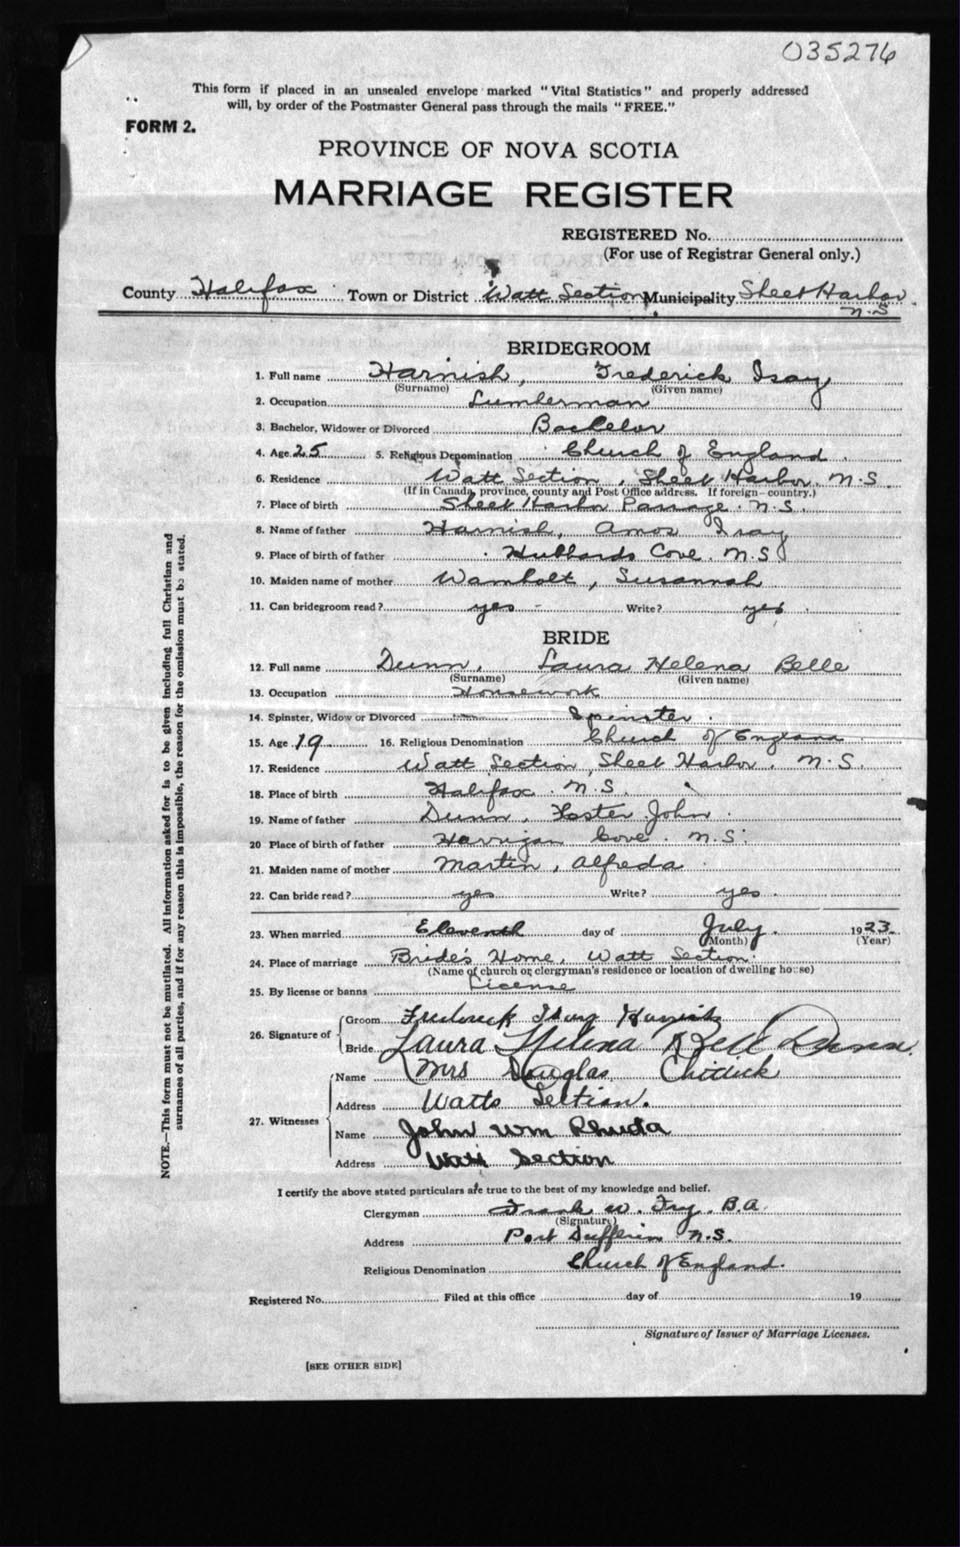 035276
This form if placed in an unsealed envelope marked "Vital Statistics" and properly addressed
will, by order of the Postmaster General pass through the mails "FREE."
FORM 2.
PROVINCE OF NOVA SCOTIA
MARRIAGE REGISTER
REGISTERED No.
(For use of Registrar General only.)
County Halifax Town or District Watt Section Municipality Sheet Harbor
N.S
BRIDEGROOM
1. Full name Harnish, Frederick Isay
(Surname) (Given name)
2. Occupation Lumberman
3. Bachelor, Widower or Divorced Bachelor
4. Age 25 5. Religious Denomination Church of England.
6. Residence Watt Section, Sheet Harbor, N.S
(If in Canada, province, county and Post Office address. If foreign-country.)
7. Place of birth Sheet Harbor Passage. N.S.
8. Name of father Harnish, Amos Isay
9. Place of birth of father Hubbards Cove. N.S
10. Maiden name of mother Wambolt, Susannah
11. Can bridegroom read? yes - Write? yes.
BRIDE
12. Full name Dunn, Laura Helena Belle
(Surname) (Given name)
13. Occupation Housework
14. Spinster, Widow or Divorced Spinster.
15. Age 19 16. Religious Denomination Church of England
17. Residence Watt Section, Sheet Harbor. N.S.
18. Place of birth Halifax. N.S.
19. Name of father Dunn, Foster John
20 Place of birth of father Harrigan Cove. N.S.
21. Maiden name of mother Martin, Alfreda
22. Can bride read? yes Write? yes
23. When married Eleventh day of July. 1923.
(Month) (Year)
24. Place of marriage Bride's Home, Watt Section.
(Name of church or clergyman's residence or location of dwelling house)
25. By license or banns License
26. Signature of
Groom Frederick Harnish
Bride Laura Helena Bell Dunn.
27. Witnesses
Name Mrs Douglas Chittick
Address Watts Section.
Name John Wm Rhuda
Address Watt Section
I certify the above stated particulars are true to the best of my knowledge and belief.
Clergyman Frank W. Fry, B.A.
(Signature)
Address Port Dufferin N.S.
Religious Denomination Church of England.
Registered No. Filed at this office day of 19
Signature of Issuer of Marriage Licenses.
[SEE OTHER SIDE]
NOTE.—This form must not be mutilated. All information asked for is to be given including full Christian and
surnames of all parties, and if for any reason this is impossible, the reason for the omission must be stated.